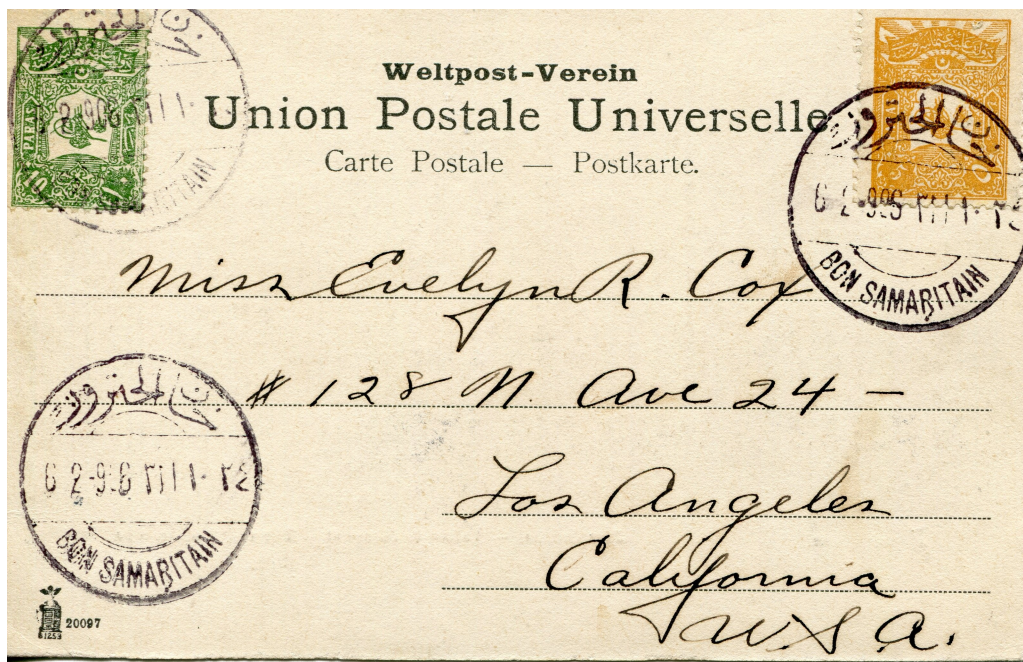 Weltpost-Verein
Union Postale Universelle
Carte Postale — Postkarte.
BON SAMARITAIN
Miss Evelyn R. Cox
# 128 N. Ave 24 —
Los Angeles
California
U S A.
6 2-906
BON SAMARITAIN
20097